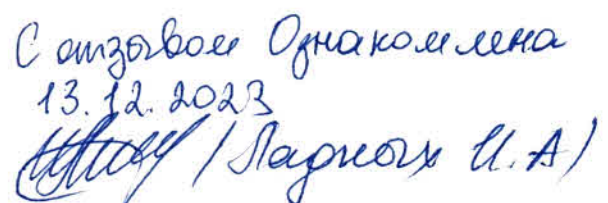 С отзывом Ознакомлена
13.12.2023
/ Ладных И.А/